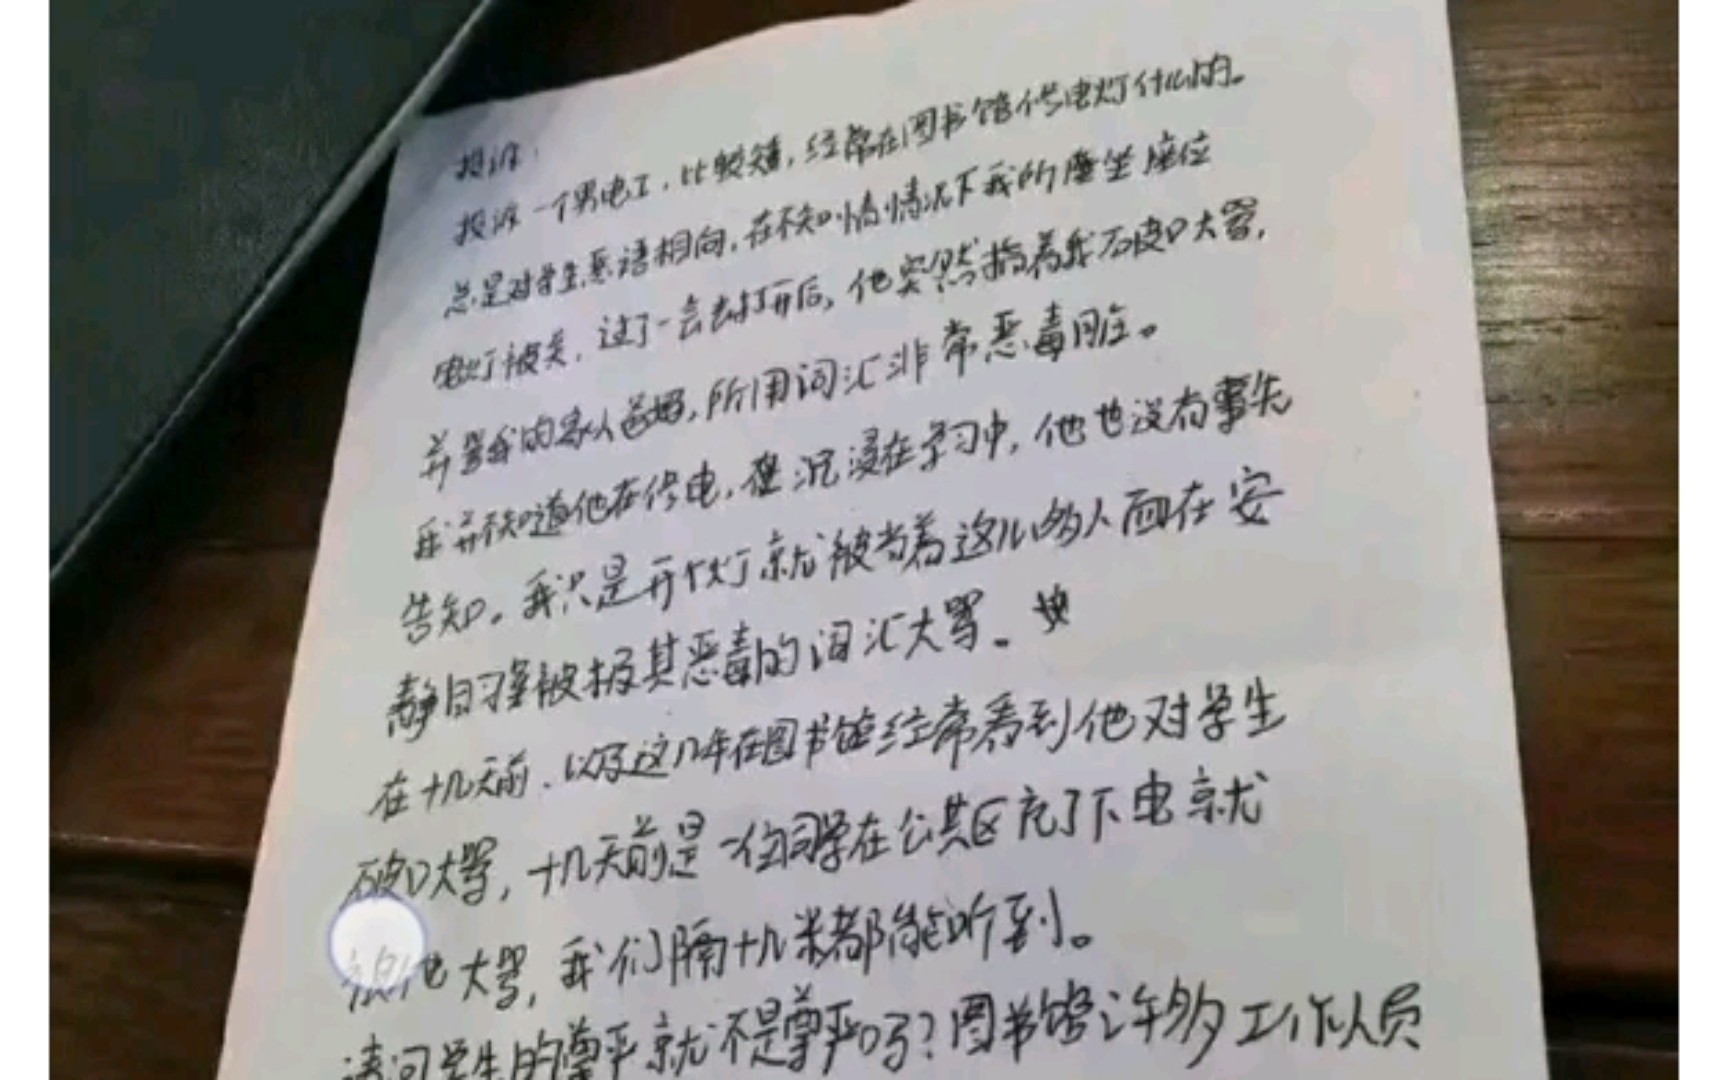 投诉：
投诉一个男电工，比较矮，经常在图书馆修电灯什么的。
总是对学生恶语相向，在不知情情况下我的座坐座位
电灯被关，过了一会去打开后，他突然指着我破口大骂，
并骂我的家人爸妈，所用词汇非常恶毒脏。
我并不知道他在修电，在沉浸在学习中，他也没有事先
告知。我只是开个灯就被当着这儿多人面在安
静自习室被极其恶毒的词汇大骂。
在十几天前、以及这几年在图书馆经常看到他对学生
破口大骂，十几天前是一位同学在公共区充了下电就
被他大骂，我们隔十几米都能听到。
请问学生的尊严就不是尊严吗？图书馆许多工作人员